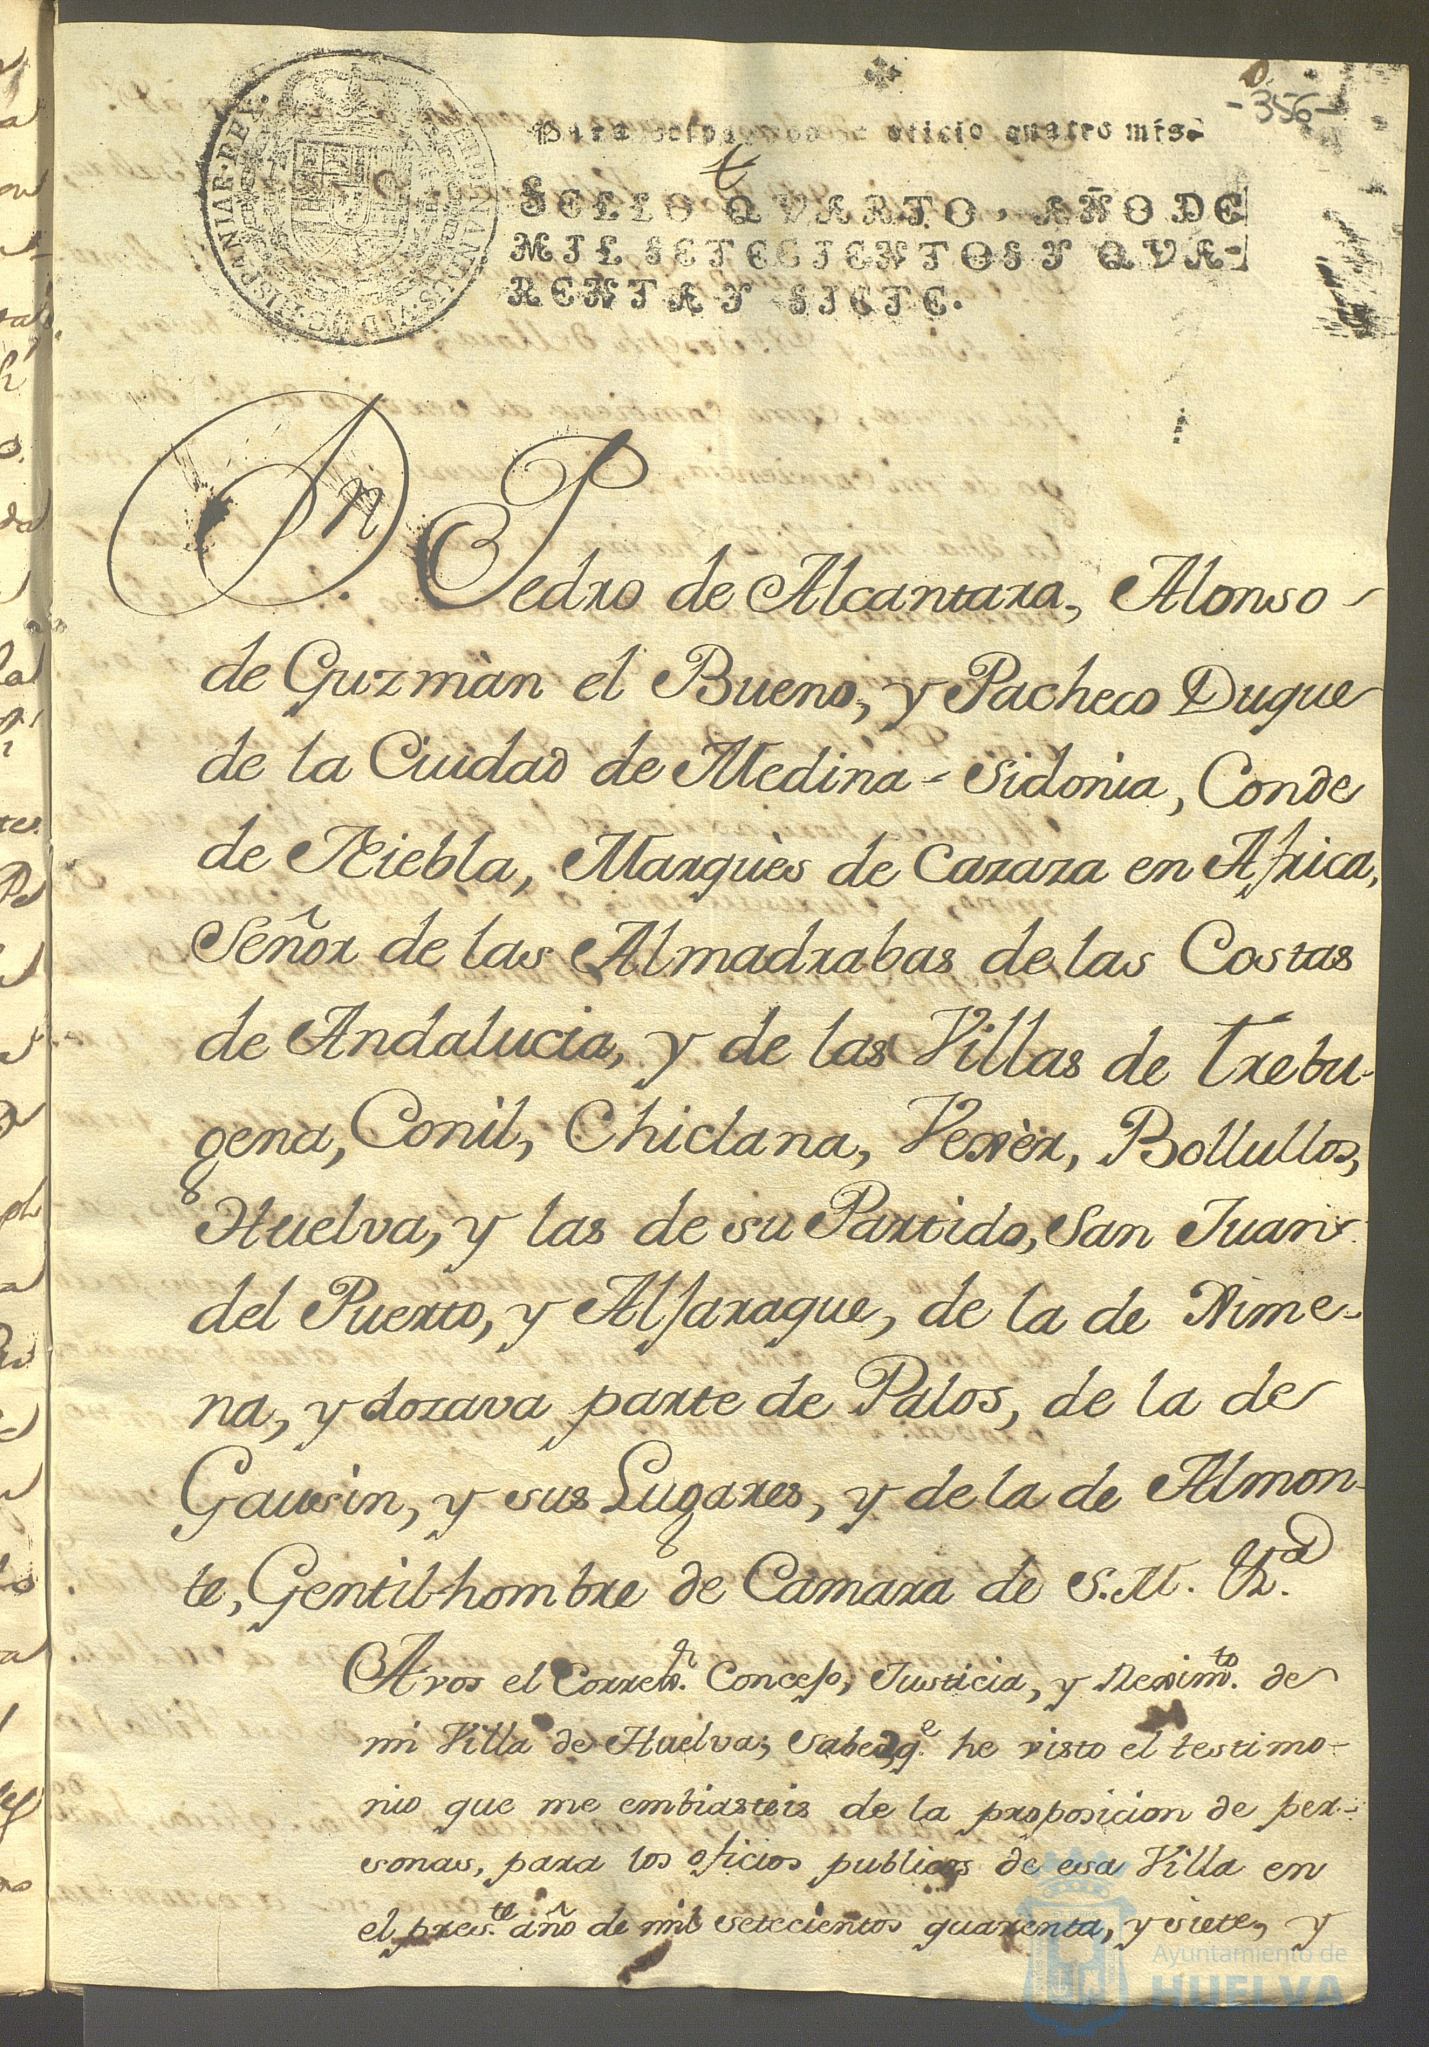 -356-
Para despachos de oficio quatro mrs.
SELLO QVARTO, AÑO DE
MIL SETECIENTOS Y QVA-
RENTA Y SIETE.
HISPANIAR·REX·
FERDINANDUS·VI·D·G·
Dn. Pedro de Alcantara, Alonso
de Guzmàn el Bueno, y Pacheco Duque
de la Ciudad de Medina-Sidonia, Conde
de Niebla, Marquès de Cazaza en Africa,
Señor de las Almadrabas de las Costas
de Andalucia, y de las Villas de Trebu-
gena, Conil, Chiclana, Vexèr, Bollullos,
Huelva, y las de su Partido, San Juan
del Puerto, y Alfaraque, de la de Xime-
na, y dozava parte de Palos, de la de
Gausin, y sus Lugares, y de la de Almon-
te, Gentil-hombre de Camara de S.M. &a.
A vos el Correxr. Concejo, Justicia, y Reximto. de
mi Villa de Huelva; Sabed, qe. he visto el testimo-
nio que me embiasteis de la proposicion de per-
sonas, para los oficios publicos de esa Villa en
el preste. año de mil setecientos quarenta, y siete, y
Ayuntamiento de
HUELVA